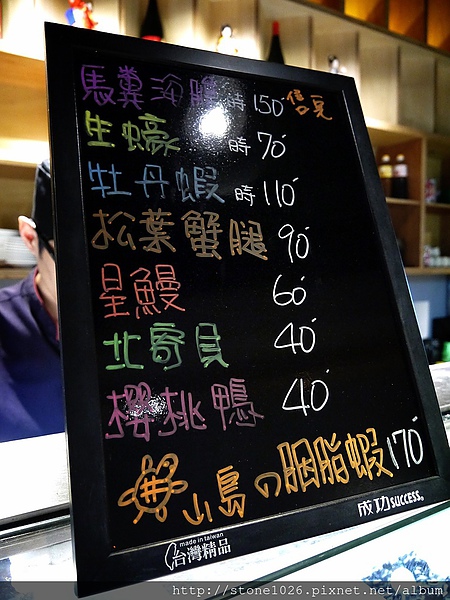 馬糞海膽 時 150
生蠔 時 70
牡丹蝦 時 110
松葉蟹腿 90
星鰻 60
北寄貝 40
櫻桃鴨 40
山島の胭脂蝦 170
成功 SUCCESS®
made in taiwan
台灣精品
http://stone1026.pixnet.net/album